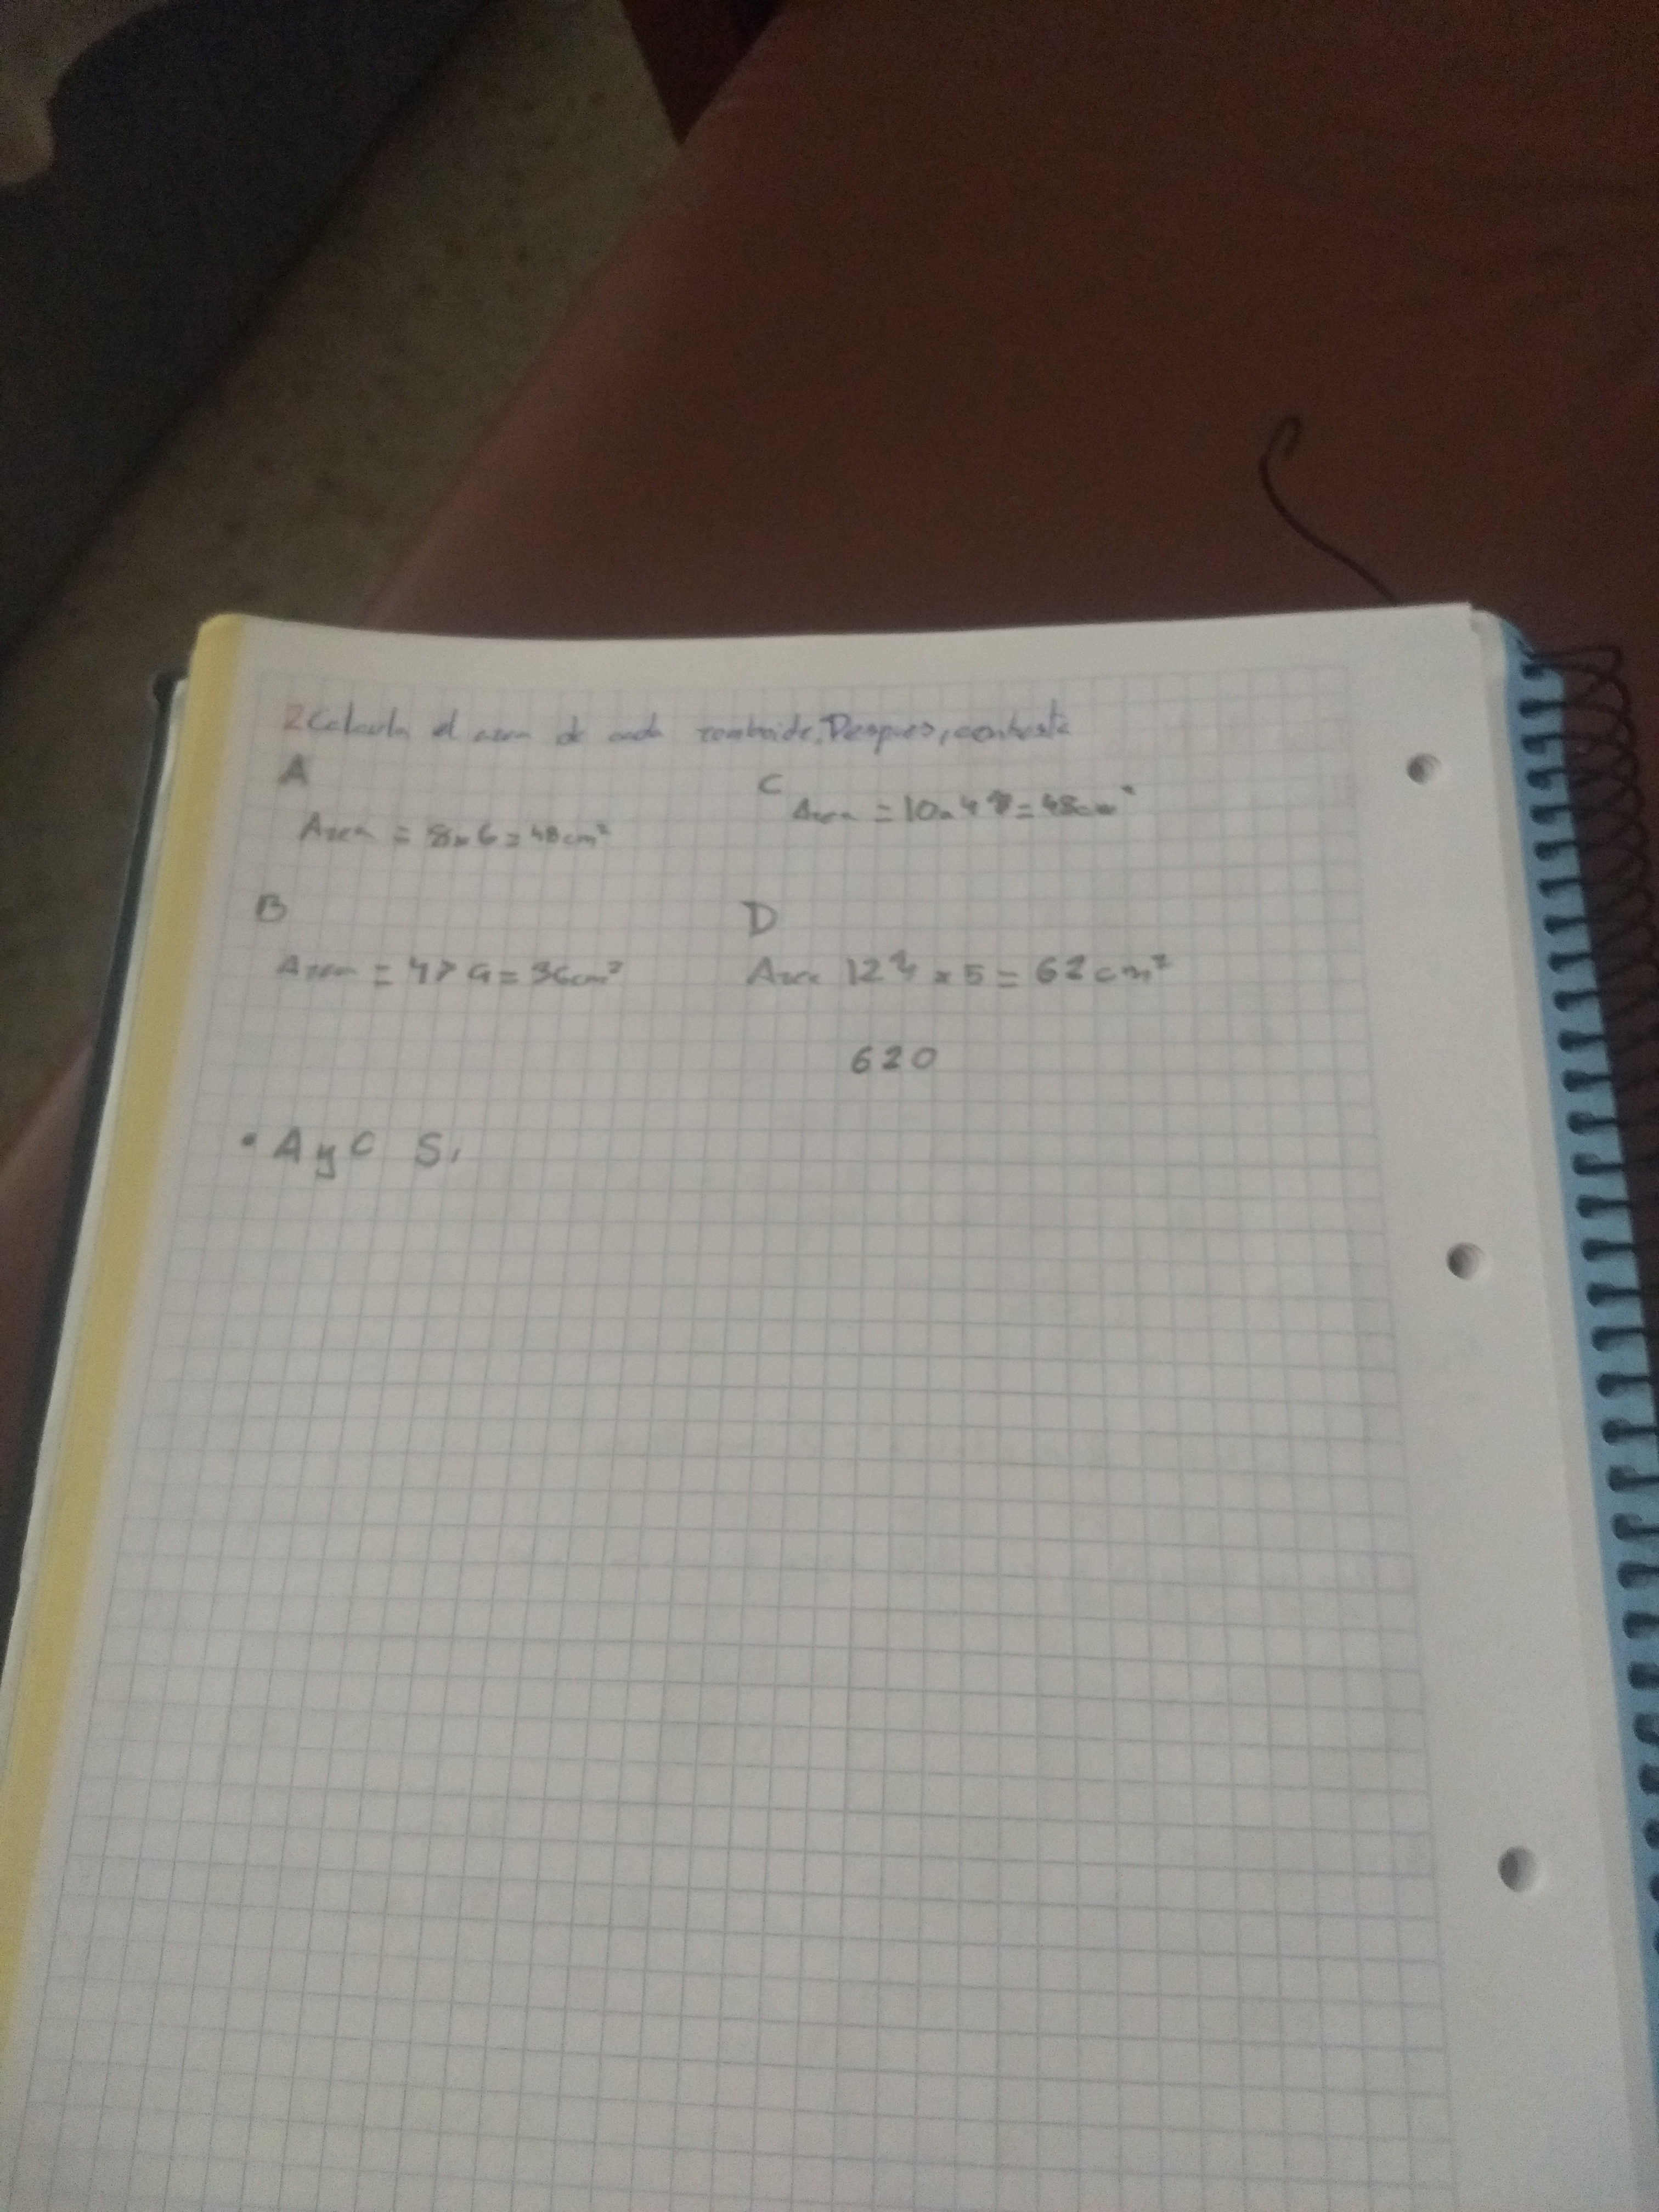 2 Calcula el area de cada romboide. Despues, contesta
A
Area = 8x6=48cm²
C
Area = 10x4'8=48cm²
B
Area = 4x9=36cm²
D
Area 12'4x5=62cm²
620
• A y C Si